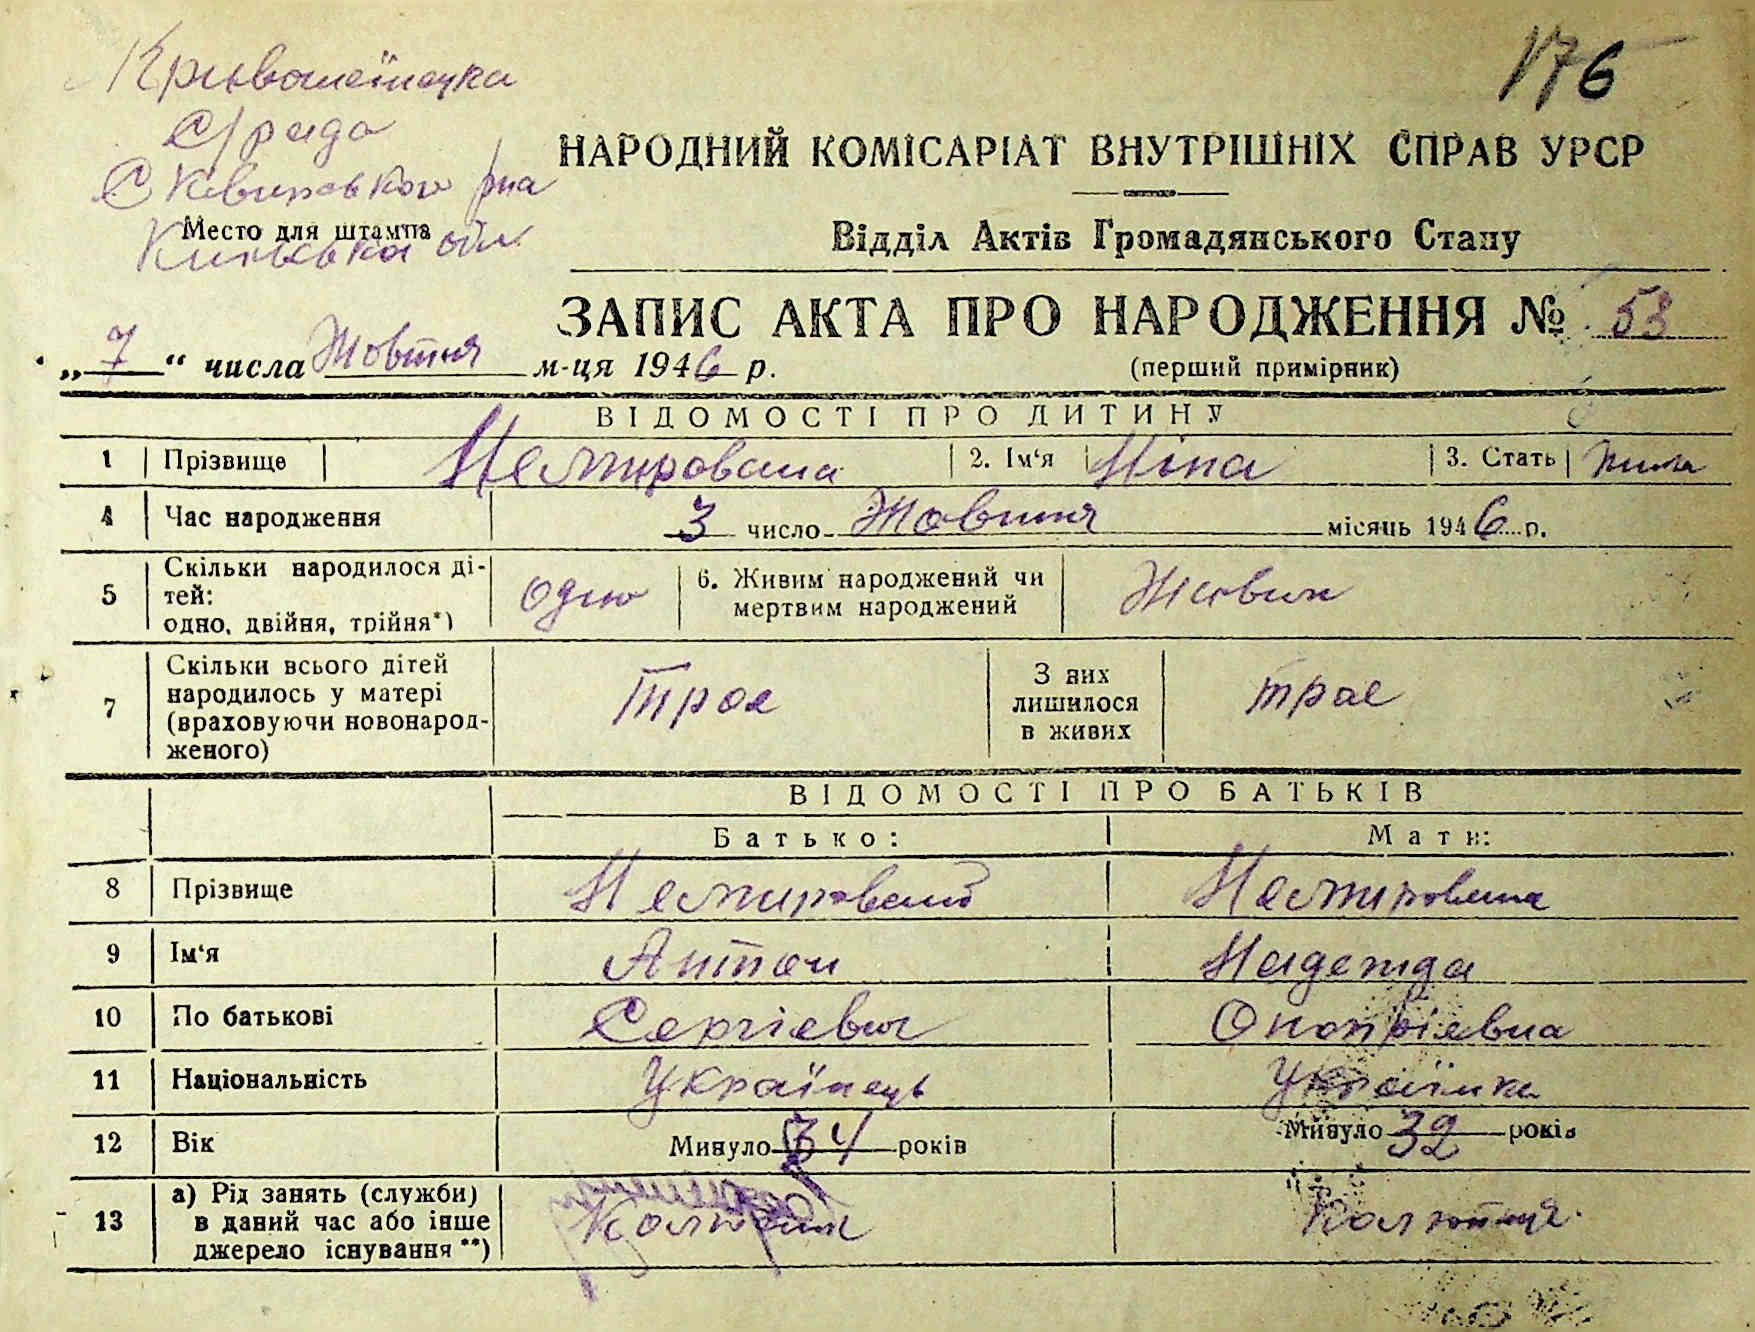 176
Кривошеїнецка
С/рада
Сквирського р-на
Київська обл.
Место для штампа
НАРОДНИЙ КОМІСАРІАТ ВНУТРІШНІХ СПРАВ УРСР
Відділ Актів Громадянського Стану
ЗАПИС АКТА ПРО НАРОДЖЕННЯ № 53
(перший примірник)
„ 7 “ числа Жовтня м-ця 1946 р.
ВІДОМОСТІ ПРО ДИТИНУ
1 Прізвище Немирована 2. Ім‘я Ніна 3. Стать
4 Час народження 3 число Жовтня місяць 1946 р.
5 Скільки народилося ді-
тей:
одно, двійня, трійня*) одно 6. Живим народжений чи
мертвим народжений Живим
7 Скільки всього дітей
народилось у матері
(враховуючи новонарод-
женого) Троє З них
лишилося
в живих троє
ВІДОМОСТІ ПРО БАТЬКІВ
Батько: Мати:
8 Прізвище Немирований Немирована
9 Ім‘я Антон Надежда
10 По батькові Сергієвич Онопріевна
11 Національність Українець Українка
12 Вік Минуло 34 років Минуло 32 років
13 а) Рід занять (служби)
в даний час або інше
джерело існування **)